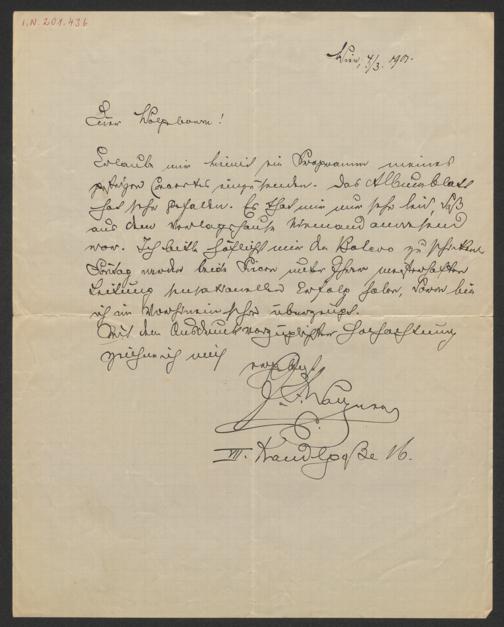 I.N. 201.436
Wien, 7/3. 1901.
Euer Wohlgeboren!
Erlaube mir hiemit ein Programm meines
Concertes einzusenden. Das Albumblatt
hat sehr gefallen. Es that mir nur sehr leid, daß
aus dem Verlagshause niemand anwesend
war. Ich bitte höflichst mir den Bolero zu schicken
Sonntag werden beide Piecen unter Ihrer meisterhaften
Leitung sensationellen Erfolg haben, davon bin
ich im Vorhinein schon überzeugt.
Mit dem Ausdruck vorzüglichster Hochachtung
zeichne ich mich
ergebenst
J. Wagner
VII. Kandlgaße 16.